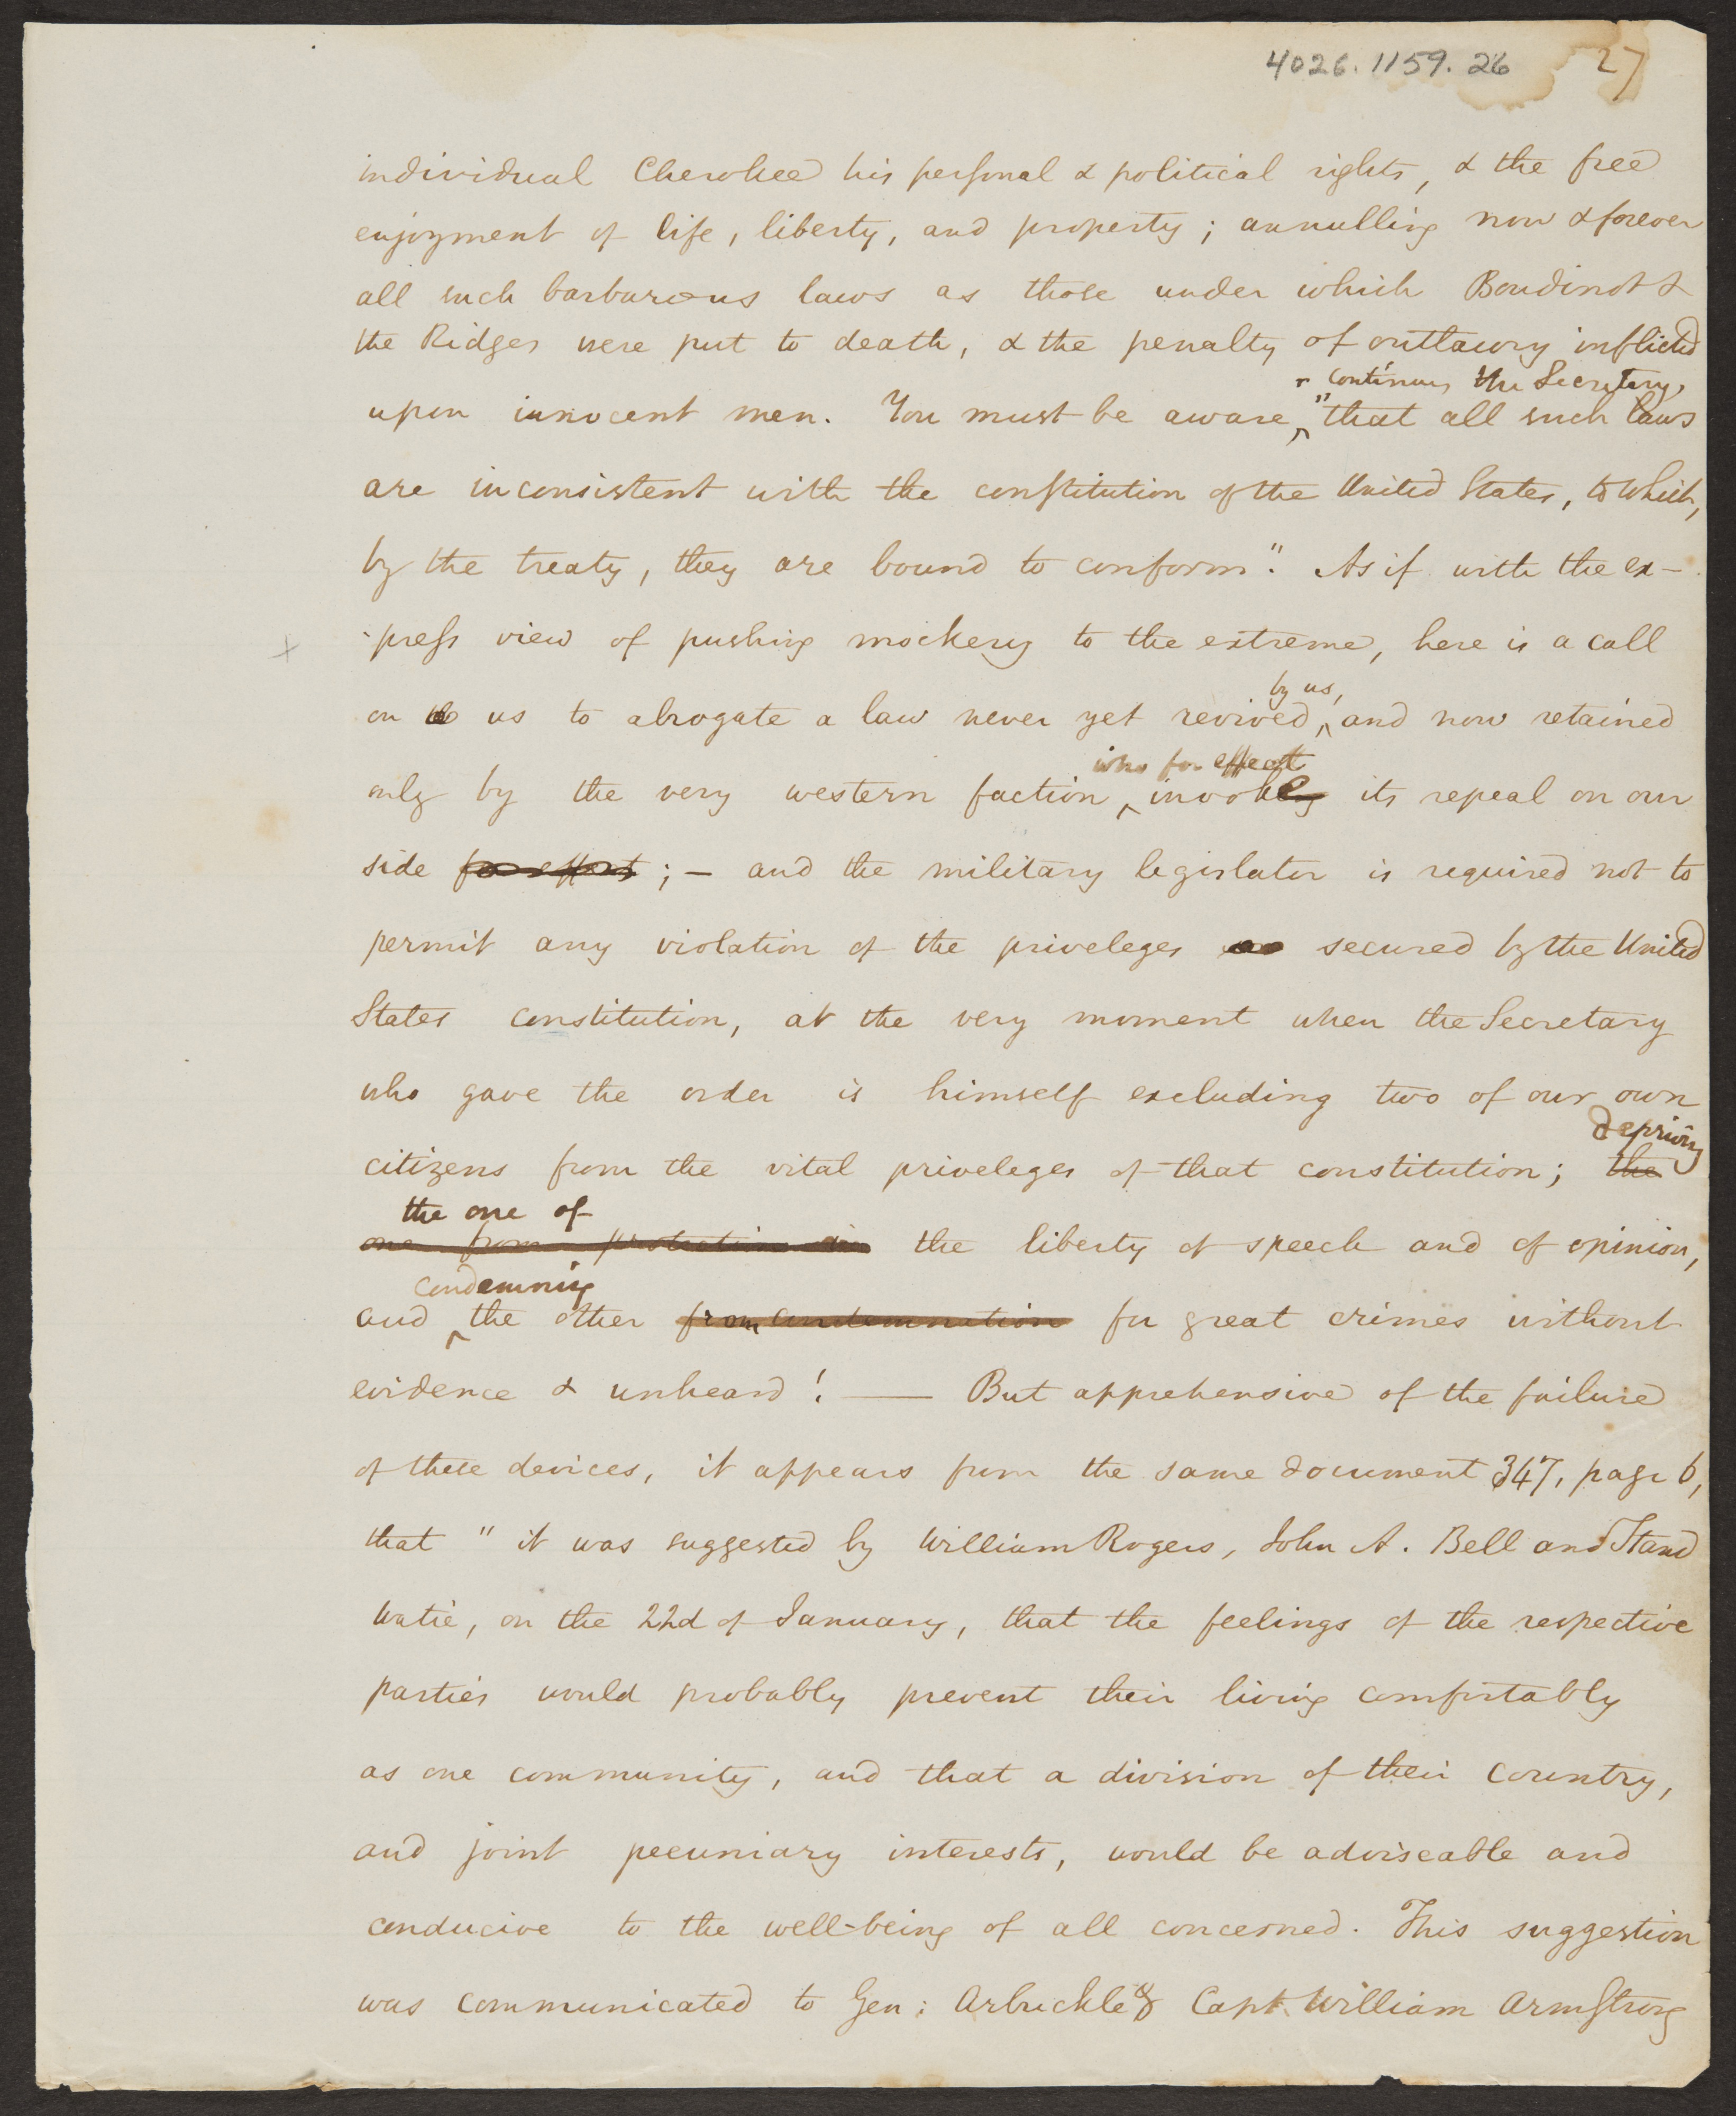 4026.1159.26 27
individual Cherokee his personal & political rights, & the free
enjoyment of life, liberty, and property; annulling now & forever
all such barbarous laws as those under which Boudinot &
the Ridges were put to death, & the penalty of outlawry inflicted
continues the Secretary,
upon innocent men. You must be aware, "that all such laws
are inconsistent with the constitution of the United States, to which,
by the treaty, they are bound to conform". As if with the ex-
press view of pushing mockery to the extreme, here is a call
by us,
on us to abrogate a law never yet revived, and now retained
who for effect
only by the very western faction, invoke its repeal on our
side for effect ; — and the military legislator is required not to
permit any violation of the priveleges secured by the United
States constitution, at the very moment when the Secretary
who gave the order is himself excluding two of our own
depriving
citizens from the vital priveleges of that constitution; the
the one of
one from protection in the liberty of speech and of opinion,
condemning
and the other from condemnation for great crimes without
evidence & unheard! — But apprehensive of the failure
of these devices, it appears from the same document 347, page 6,
that "it was suggested by William Rogers, John A. Bell and Stand
Watie, on the 22d of January, that the feelings of the respective
parties would probably prevent their living comfortably
as one community, and that a division of their country,
and joint pecuniary interests, would be adviseable and
conducive to the well-being of all concerned. This suggestion
was communicated to Gen: Arbuckle & Capt. William Armstrong